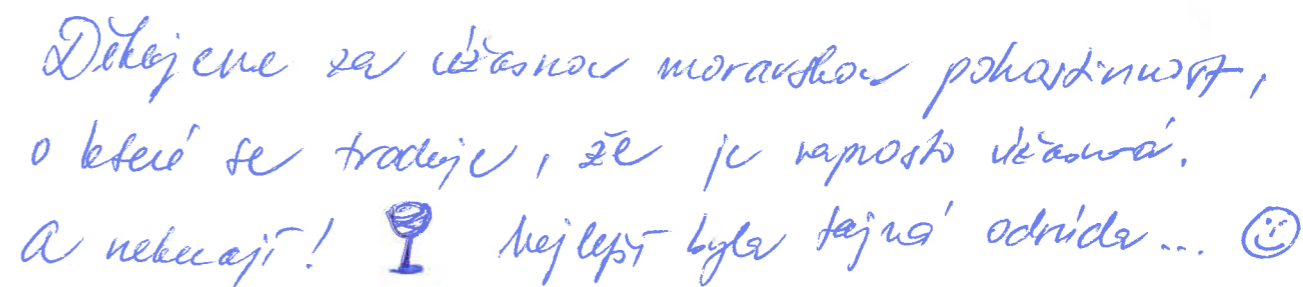 Děkujeme za úžasnou moravskou pohostinnost,
o které se traduje, že je naprosto úžasná.
A nekecají! Nejlepší byla tajná odrůda... ☺